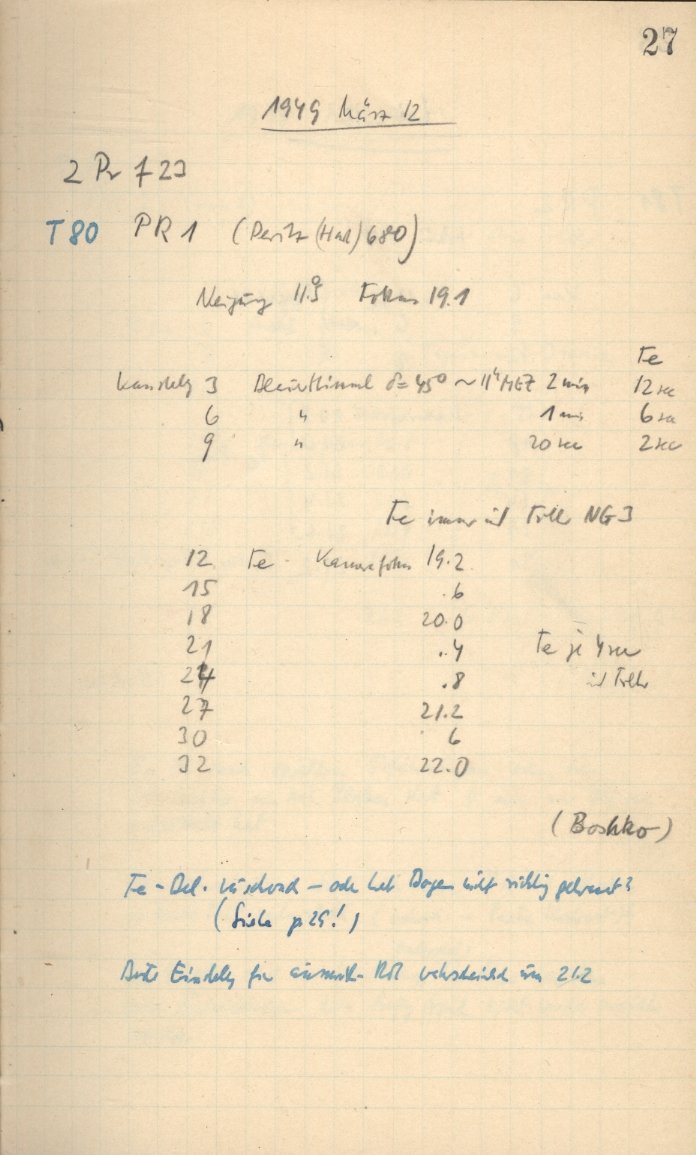 27
1949 März 12
2 Pr f 23
T80 PR 1 (Peritz (Hal) 680)
Neigung 11.5° Fokus 19.1
Fe
3 δ = 45° ~ 11ʰ MEZ 2 min 12 sec
6 " 1 min 6 sec
9 " 20 sec 2 sec
Fe immer mit Filter NG 3
12 Fe 19.2
15 .6
18 20.0
21 .4 Fe je 4 sec
24 .8 mit Filter
27 21.2
30 6
32 22.0
(Boshko)
Fe - Bel. – oder hat Bogen nicht richtig gebrannt?
(Siehe p 29!)
Beste für wahrscheinlich um 21.2